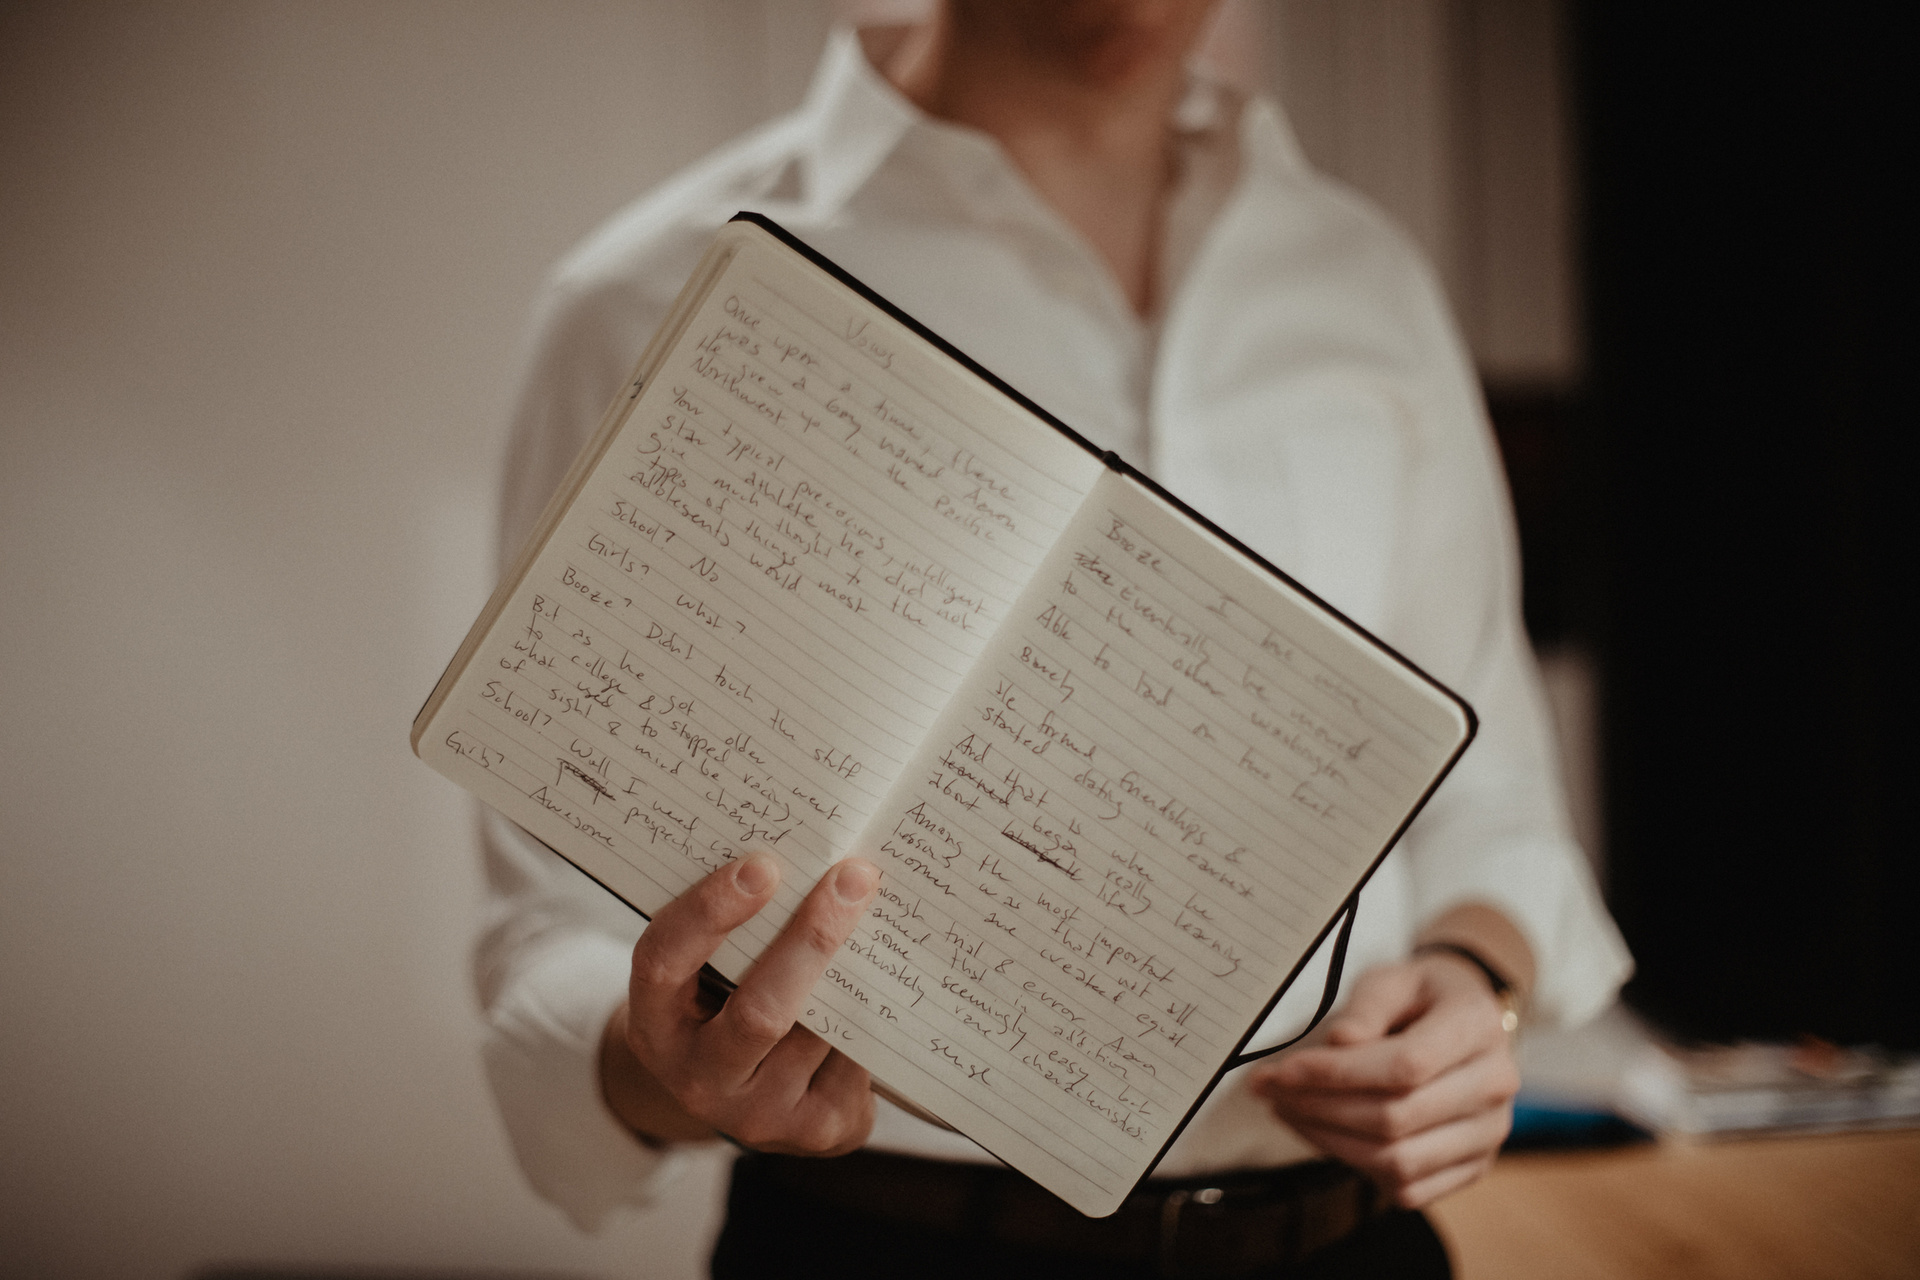 Vows
Once upon a time, there
was a boy named Aaron
He grew up in the Pacific
Northwest
Your typical precocious, intelligent
star athlete, he did not
give much thought to the
types of things most
adolesents would
School? No
Girls? What?
Booze? Didnt touch the stuff
But as he got older, went
to college & stopped racing,
what used to be out
of sight & mind changed
School? Well I need
prospective
Girls? Awesome
Booze I
Eventually he moved
to the other Washington
Able to land on two feet
Barely
He formed friendships &
started dating in earnest
And that is when he
began really learning
about life
Among the most important
lessons was that not all
women are created equal
trial & error Aaron
that in addition
some seemingly easy but
rare characteristics:
sense